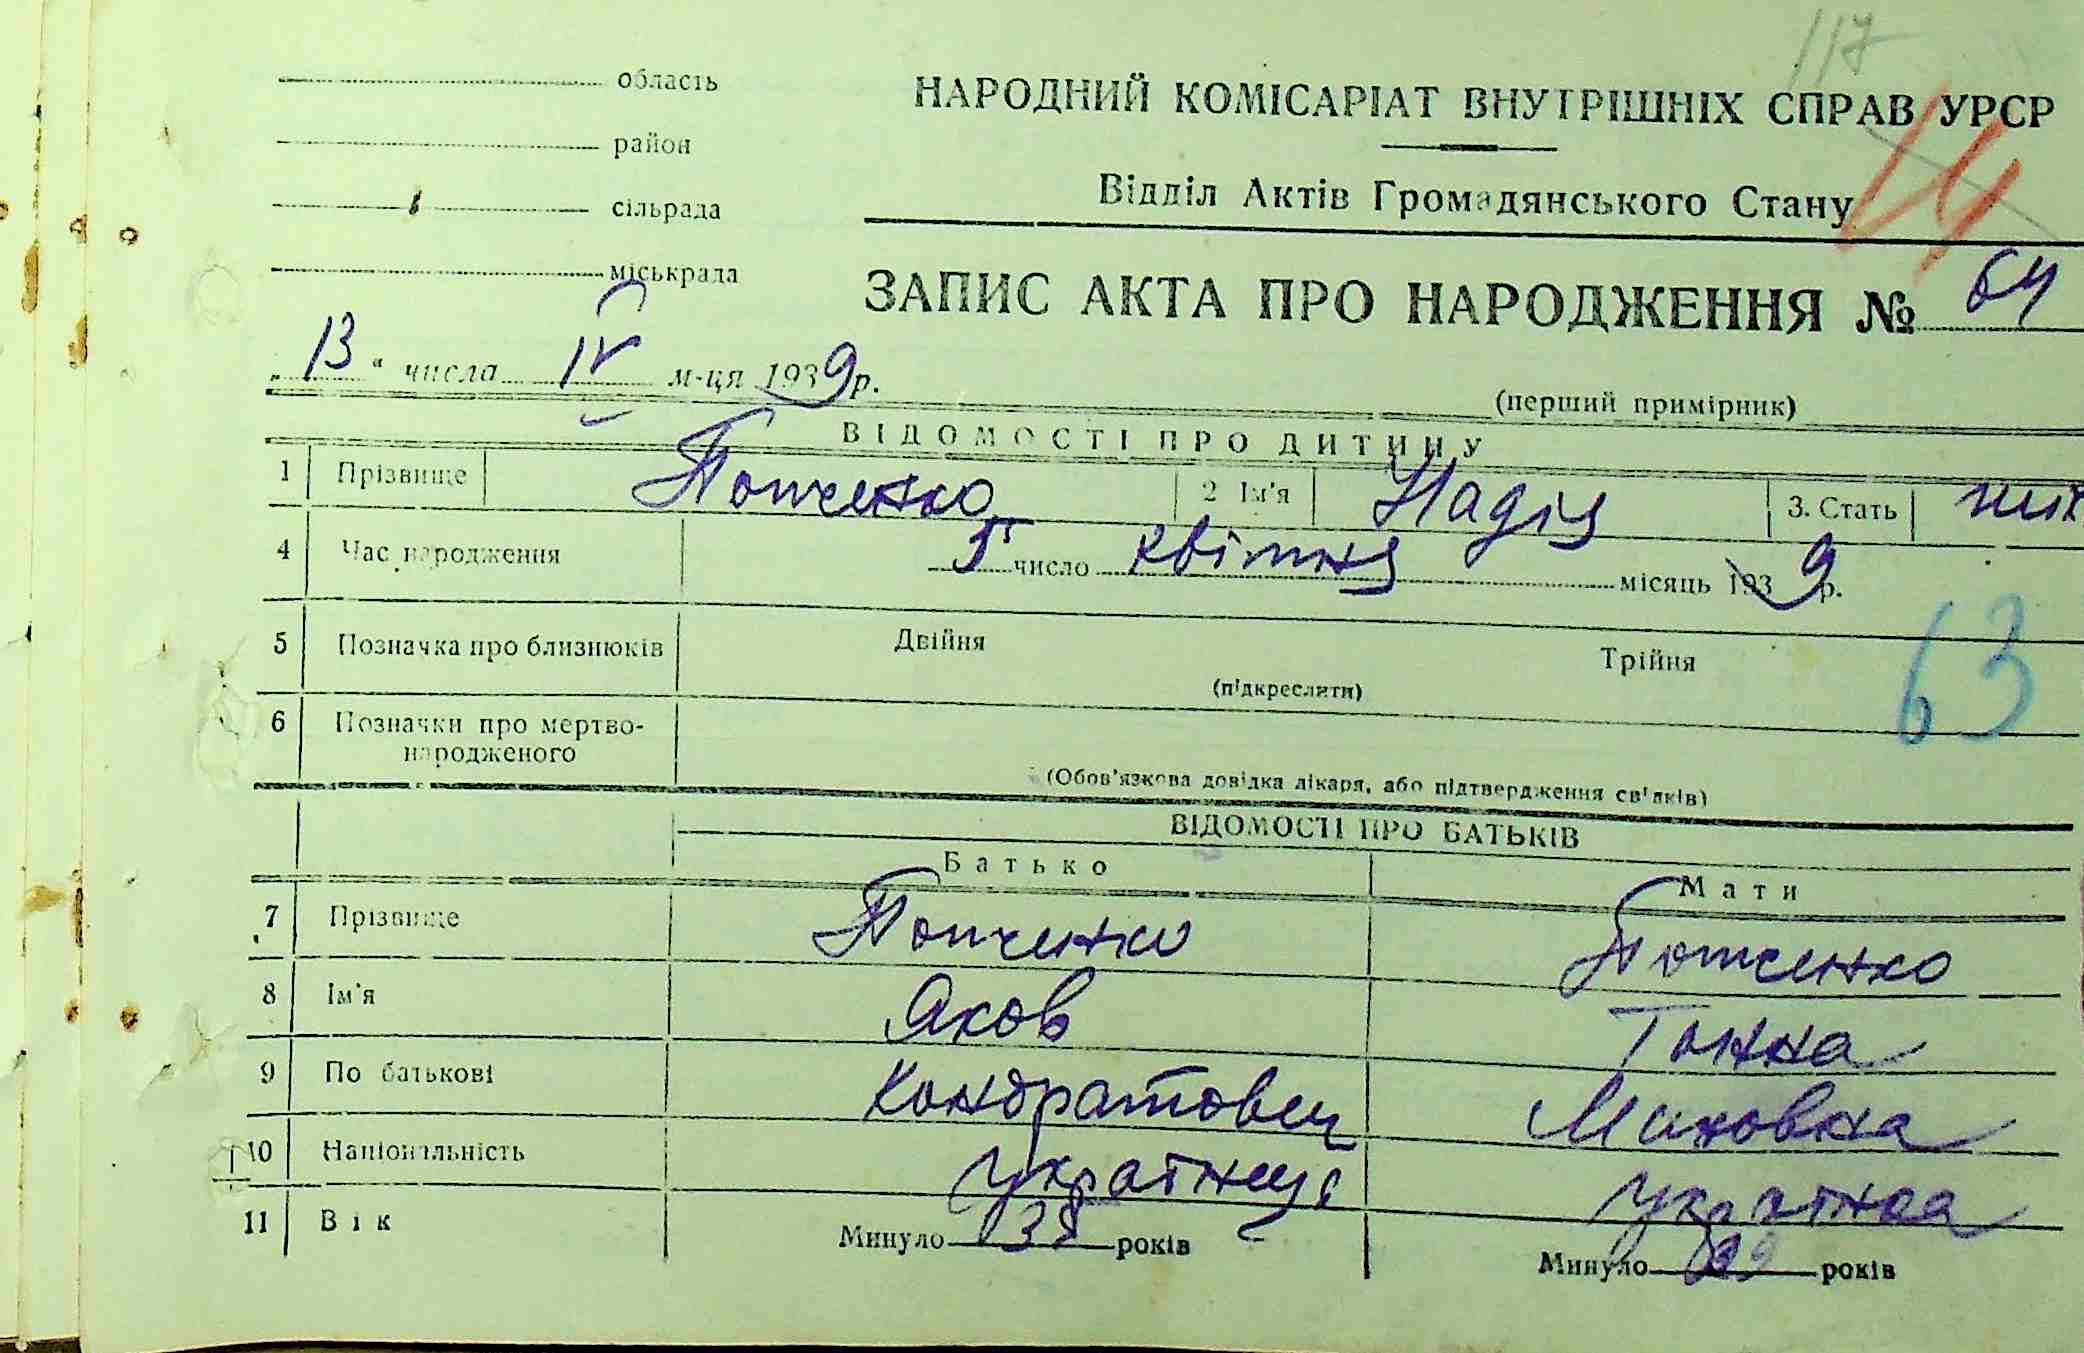 117
область
НАРОДНИЙ КОМІСАРІАТ ВНУТРІШНІХ СПРАВ УРСР
район
Відділ Актів Громадянського Стану
сільрада
міськрада
ЗАПИС АКТА ПРО НАРОДЖЕННЯ № 64
„13“ числа IV м-ця 1939 р.
(перший примірник)
ВІДОМОСТІ ПРО ДИТИНУ
1 Прізвище Попченко 2 Ім'я Надія 3. Стать
4 Час народження 5 число квітня місяць 1939 р.
5 Позначка про близнюків Двійня Трійня
(підкреслити)
63
6 Позначки про мертво-
народженого
(Обов'язкова довідка лікаря, або підтвердження свідків)
ВІДОМОСТІ ПРО БАТЬКІВ
Батько Мати
7 Прізвище Попченко Попченко
8 Ім'я Яков Ганна
9 По батькові Кондратович
10 Національність українець українка
11 Вік Минуло 38 років Минуло років